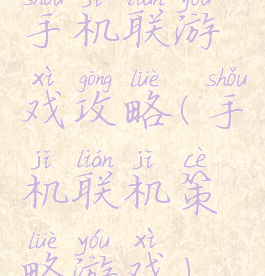 shǒu jī lián yóu
手机联游
xì gōng lüè shǒu
戏攻略(手
jī lián jī cè
机联机策
lüè yóu xì
略游戏)